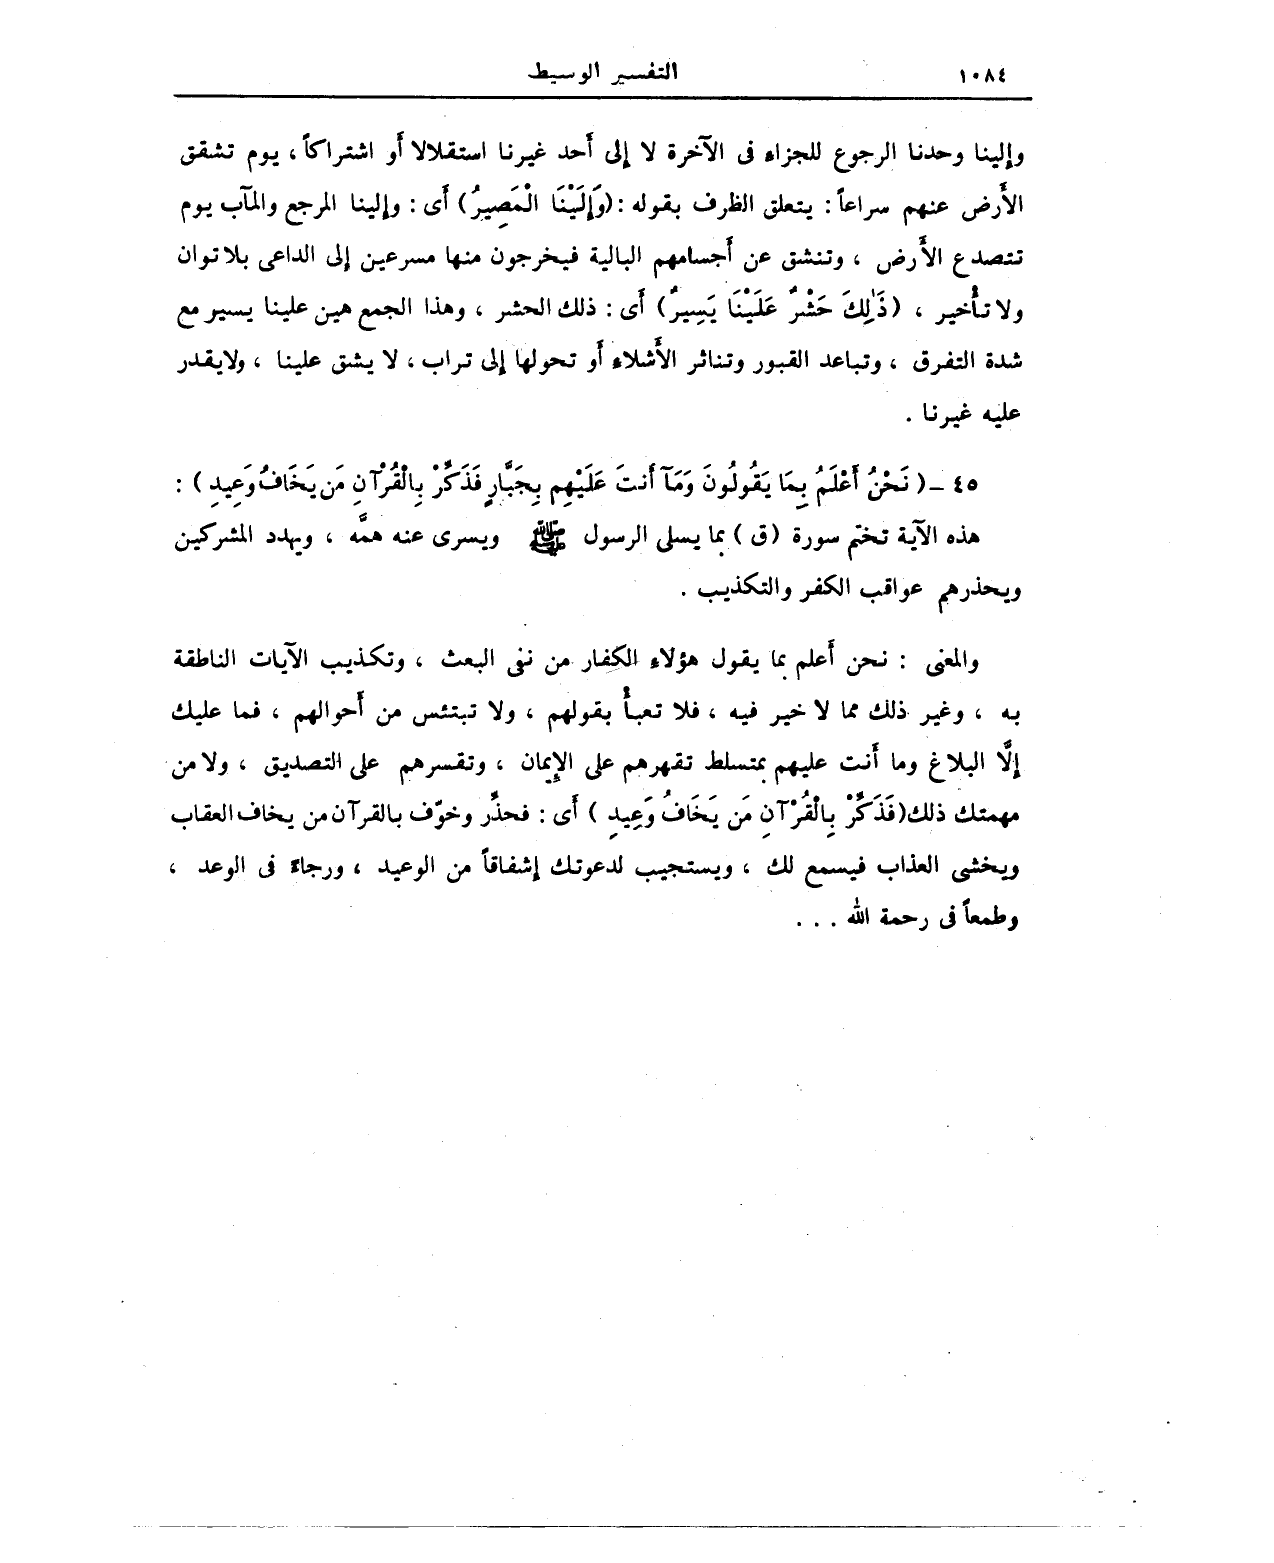 ١٠٨٤ التفسير الوسيط
وإلينا وحدنا الرجوع للجزاء فى الآخرة لا إلى أحد غيرنا استقلالا أو اشتراكاً ، يوم تشقق
الأرض عنهم سراعاً : يتعلق الظرف بقوله : (وَإِلَيْنَا الْمَصِيرُ) أى : وإلينا المرجع والمآب يوم
تتصدع الأرض ، وتنشق عن أجسامهم البالية فيخرجون منها مسرعين إلى الداعى بلاتوان
ولا تأخير ، (ذَٰلِكَ حَشْرٌ عَلَيْنَا يَسِيرٌ) أى : ذلك الحشر ، وهذا الجمع هين علينا يسير مع
شدة التفرق ، وتباعد القبور وتناثر الأشلاء أو تحولها إلى تراب ، لا يشق علينا ، ولايقدر
عليه غيرنا .
٤٥ – ( نَحْنُ أَعْلَمُ بِمَا يَقُولُونَ وَمَآ أَنتَ عَلَيْهِم بِجَبَّارٍ فَذَكِّرْ بِالْقُرْآنِ مَن يَخَافُ وَعِيدِ ) :
هذه الآية تختم سورة (ق) بما يسلى الرسول ﷺ ويسرى عنه همَّه ، ويهدد المشركين
ويحذرهم عواقب الكفر والتكذيب .
والمعنى : نحن أعلم بما يقول هؤلاء الكفار من نفى البعث ، وتكذيب الآيات الناطقة
به ، وغير ذلك مما لا خير فيه ، فلا تعبأ بقولهم ، ولا تبتئس من أحوالهم ، فما عليك
إلَّا البلاغ وما أنت عليهم بمتسلط تقهرهم على الإيمان ، وتقسرهم على التصديق ، ولا من
مهمتك ذلك(فَذَكِّرْ بِالْقُرْآنِ مَن يَخَافُ وَعِيدِ ) أى : فحذِّر وخوّف بالقرآن من يخاف العقاب
ويخشى العذاب فيسمع لك ، ويستجيب لدعوتك إشفاقاً من الوعيد ، ورجاءً فى الوعد ،
وطمعاً فى رحمة الله . . .